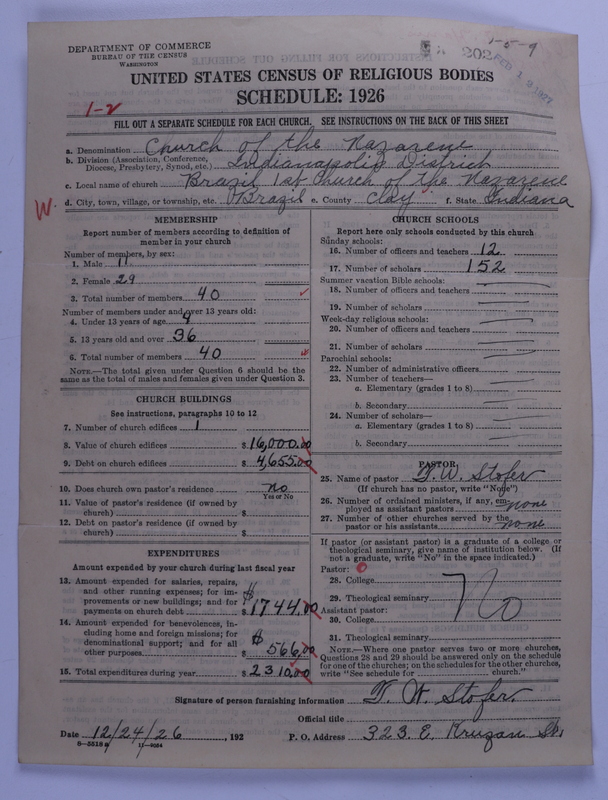 DEPARTMENT OF COMMERCE
BUREAU OF THE CENSUS
WASHINGTON
1-5-9
202
FEB 12 1927
UNITED STATES CENSUS OF RELIGIOUS BODIES
SCHEDULE: 1926
1-2
FILL OUT A SEPARATE SCHEDULE FOR EACH CHURCH. SEE INSTRUCTIONS ON THE BACK OF THIS SHEET
a. Denomination Church of the Nazarene
b. Division (Association, Conference, Diocese, Presbytery, Synod, etc.) Indianapolis District
c. Local name of church Brazil 1st Church of the Nazarene
W. d. City, town, village, or township, etc. Brazil e. County Clay f. State Indiana
MEMBERSHIP
Report number of members according to definition of member in your church
Number of members, by sex:
1. Male 11
2. Female 29
3. Total number of members 40
Number of members under and over 13 years old:
4. Under 13 years of age 4
5. 13 years old and over 36
6. Total number of members 40
NOTE.—The total given under Question 6 should be the same as the total of males and females given under Question 3.
CHURCH BUILDINGS
See instructions, paragraphs 10 to 12
7. Number of church edifices 1
8. Value of church edifices $16,000.00
9. Debt on church edifices $4,655.00
10. Does church own pastor's residence no
Yes or No
11. Value of pastor's residence (if owned by church) $
12. Debt on pastor's residence (if owned by church) $
EXPENDITURES
Amount expended by church during last fiscal year
13. Amount expended for salaries, repairs, and other running expenses; for improvements or new buildings; and for payments on church debt $ $1744.00
14. Amount expended for benevolences, including home and foreign missions; for denominational support; and for all other purposes $ $566.00
15. Total expenditures during year $2310.00
CHURCH SCHOOLS
Report here only schools conducted by this church
Sunday schools:
16. Number of officers and teachers 12
17. Number of scholars 152
Summer vacation Bible schools:
18. Number of officers and teachers
19. Number of scholars
Week-day religious schools:
20. Number of officers and teachers
21. Number of scholars
Parochial schools:
22. Number of administrative officers
23. Number of teachers—
a. Elementary (grades 1 to 8)
b. Secondary
24. Number of scholars—
a. Elementary (grades 1 to 8)
b. Secondary
PASTOR
25. Name of pastor T. W. Stofer
(If church has no pastor, write "None")
26. Number of ordained ministers, if any, employed as assistant pastors none
27. Number of other churches served by the pastor or his assistants none
If pastor (or assistant pastor) is a graduate of a college or theological seminary, give name of institution below. (If not a graduate, write "No" in the space indicated.)
Pastor: 0
28. College
29. Theological seminary No
Assistant pastor:
30. College
31. Theological seminary
NOTE.—Where one pastor serves two or more churches, Questions 28 and 29 should be answered only on the schedule for one of the churches; on the schedules for the other churches, write "See schedule for church."
Signature of person furnishing information T. W. Stofer
Official title
Date 12/24/26, 192 P. O. Address 323. E. Kruzan St.
8—5518a 11—9254